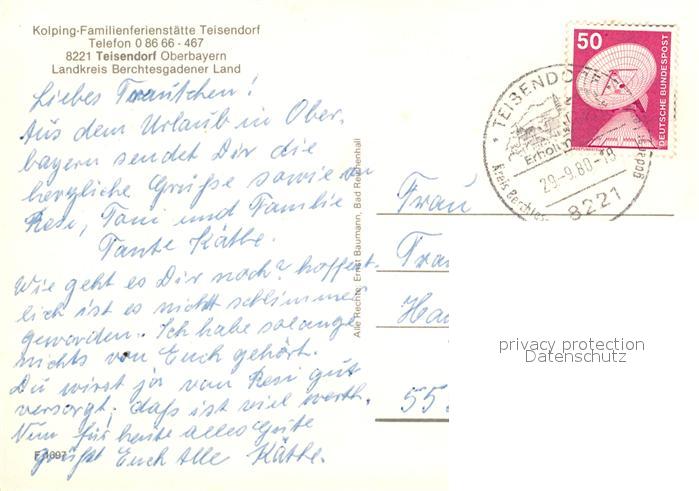 Kolping-Familienferienstätte Teisendorf
Telefon 0 86 66 - 467
8221 Teisendorf Oberbayern
Landkreis Berchtesgadener Land
Liebes Trautchen!
Aus dem Urlaub in Ober-
bayern sendet Dir die
herzliche Grüße sowie an
Resi, Toni und Familie
Tante Käthe.
Wie geht es Dir noch? hoffent-
lich ist es nicht schlimmer
geworden. Ich habe solange
nichts von Euch gehört.
Du wirst ja von Resi gut
versorgt, daß ist viel werth.
Nun für heute alles Gute
grüßt Euch Alle Käthe.
F 1697
Alle Rechte: Ernst Baumann, Bad Reichenhall
50
DEUTSCHE BUNDESPOST
* TEISENDORF
Erholung
29.-9.80-18
8221
Kreis Berchtes
Frau
Fra
Ha
55
privacy protection
Datenschutz